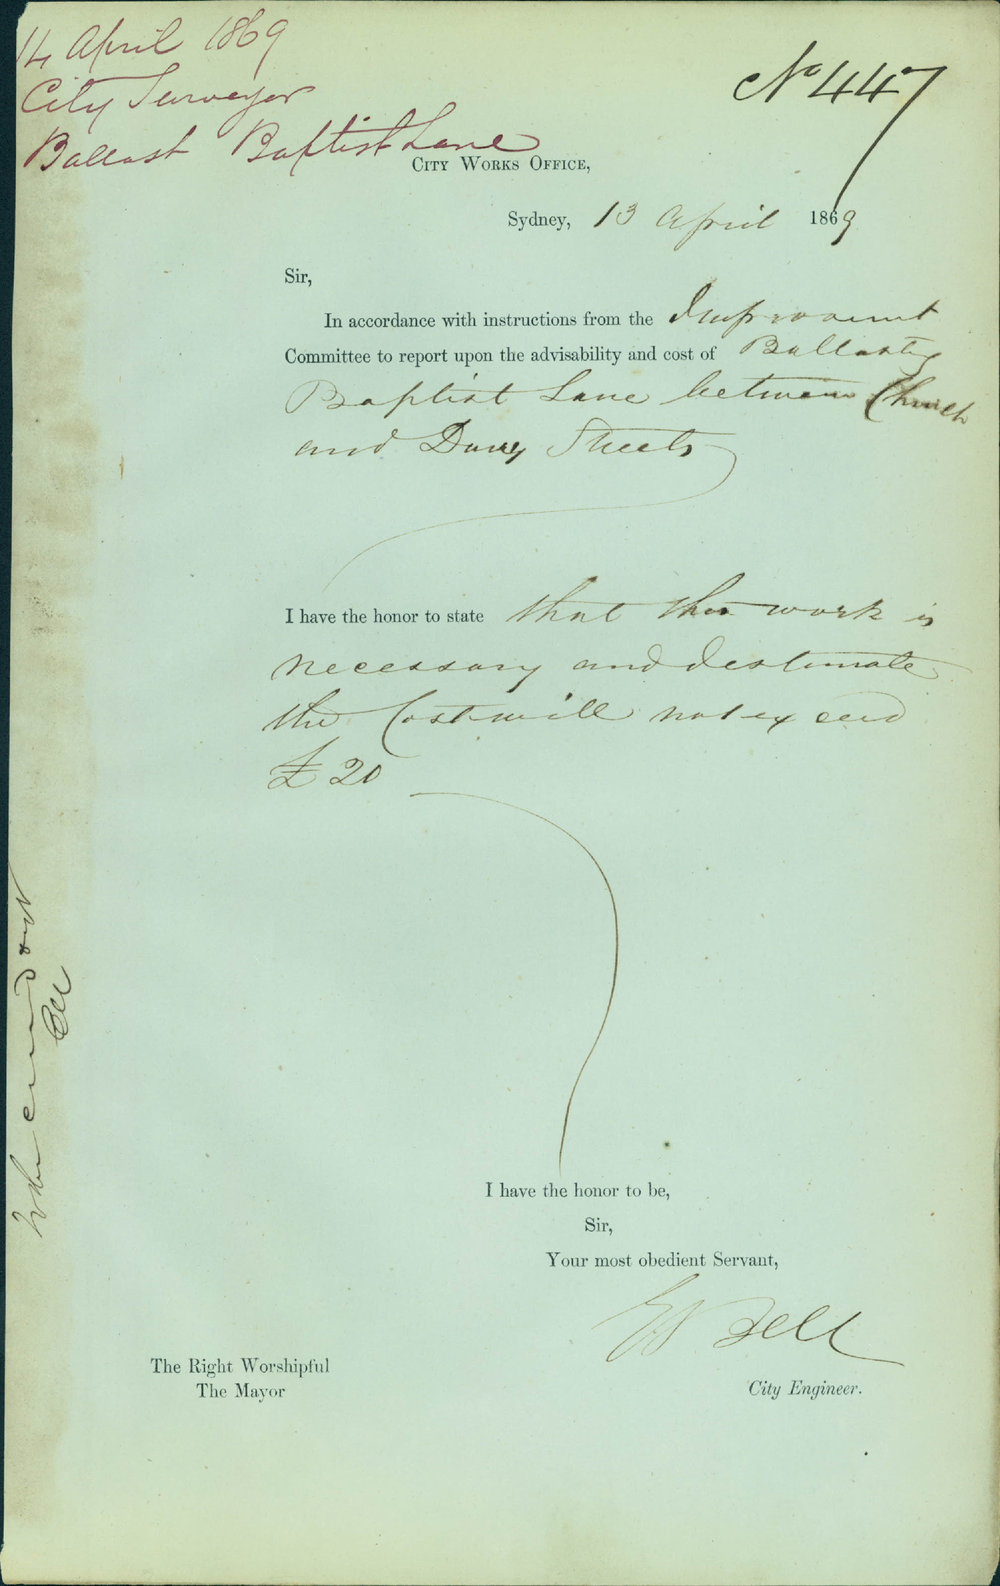 14 April 1869
City Surveyor
Ballast Baptist Lane
No 447
CITY WORKS OFFICE,
Sydney, 13 April 1869
Sir,
In accordance with instructions from the Improvement
Committee to report upon the advisability and cost of Ballasting
Baptist Lane between Church
and Davy Streets
I have the honor to state that this work is
necessary and I estimate
the Cost will not exceed
£20
I have the honor to be,
Sir,
Your most obedient Servant,
E Bell
City Engineer.
The Right Worshipful
The Mayor